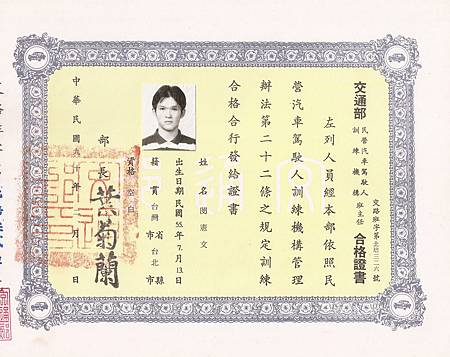 交通部
民營汽車駕駛人
訓練機構
班主任
合格證書
交路班字第北班三二六號
左列人員經本部依照民
營汽車駕駛人訓練機構管理
辦法第二十二條之規定訓練
合格合行發給證書
姓名 閔憲文
出生日期民國55年7月13日
籍貫 台灣省市台北市縣
資格 空白
部長 葉菊蘭
中華民國九十年 月 日